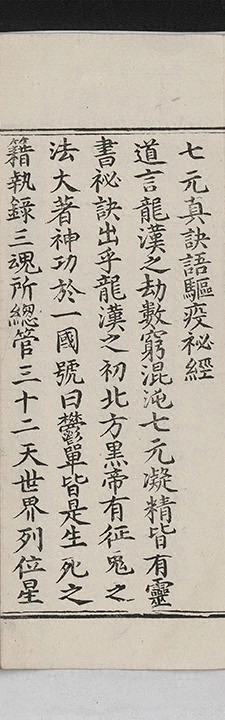 七元真訣語驅疫祕經
道言龍漢之劫數窮混沌七元凝精皆有靈
書祕訣出乎龍漢之初北方黑帝有征鬼之
法大著神功於一國號曰鬱單皆是生死之
籍執錄三魂所總管三十二天世界列位星